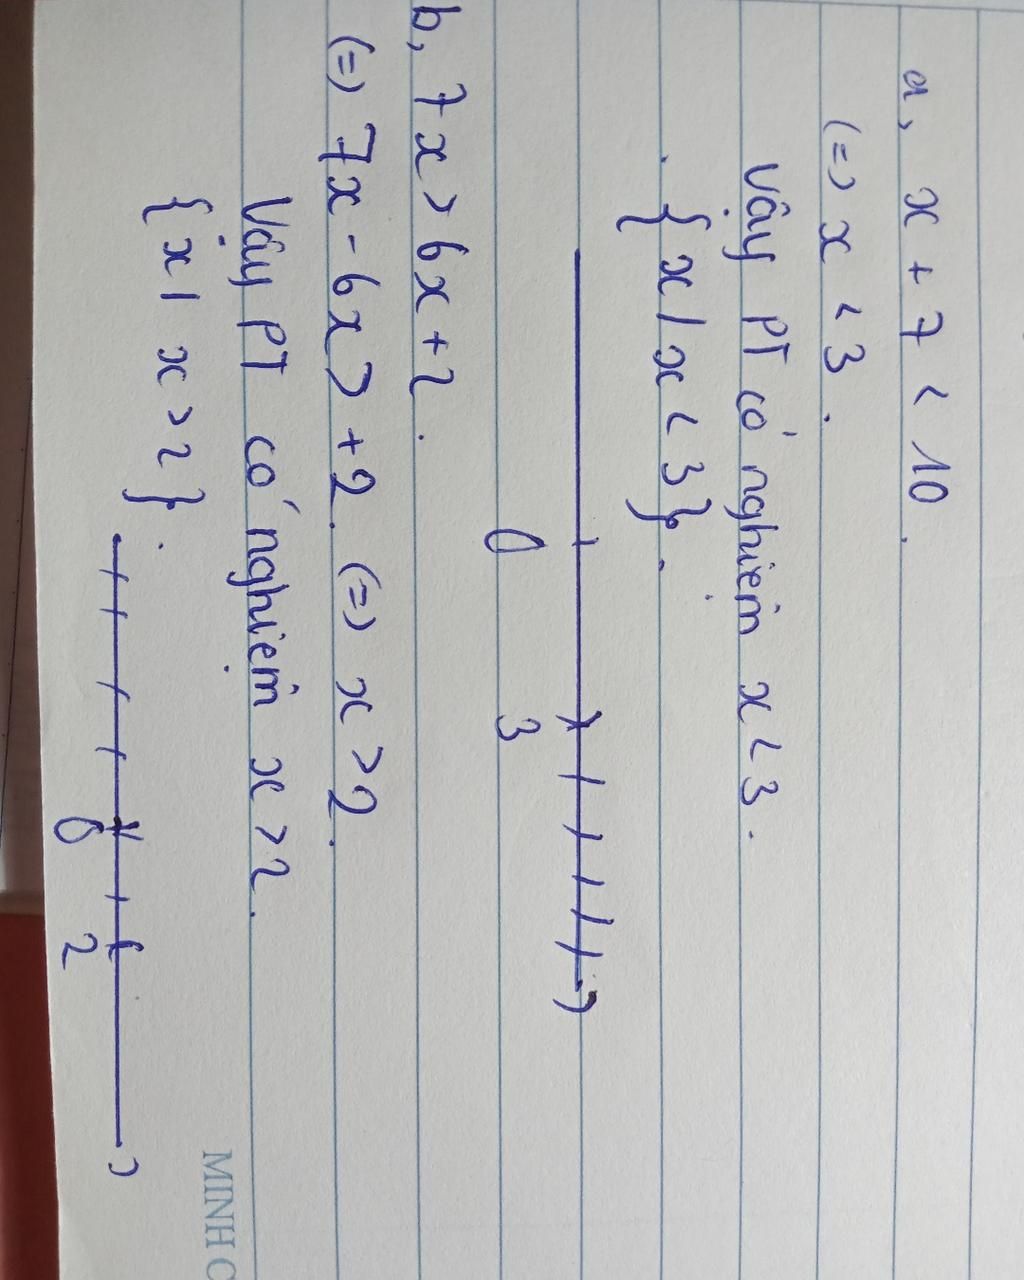 a, x + 7 < 10.
(=) x < 3.
Vậy PT có nghiệm x < 3.
{x / x < 3}.
0 3
b, 7x > 6x + 2.
(=) 7x - 6x > +2. (=) x > 2.
Vậy PT có nghiệm x > 2.
{x | x > 2}.
0 2
MINH C